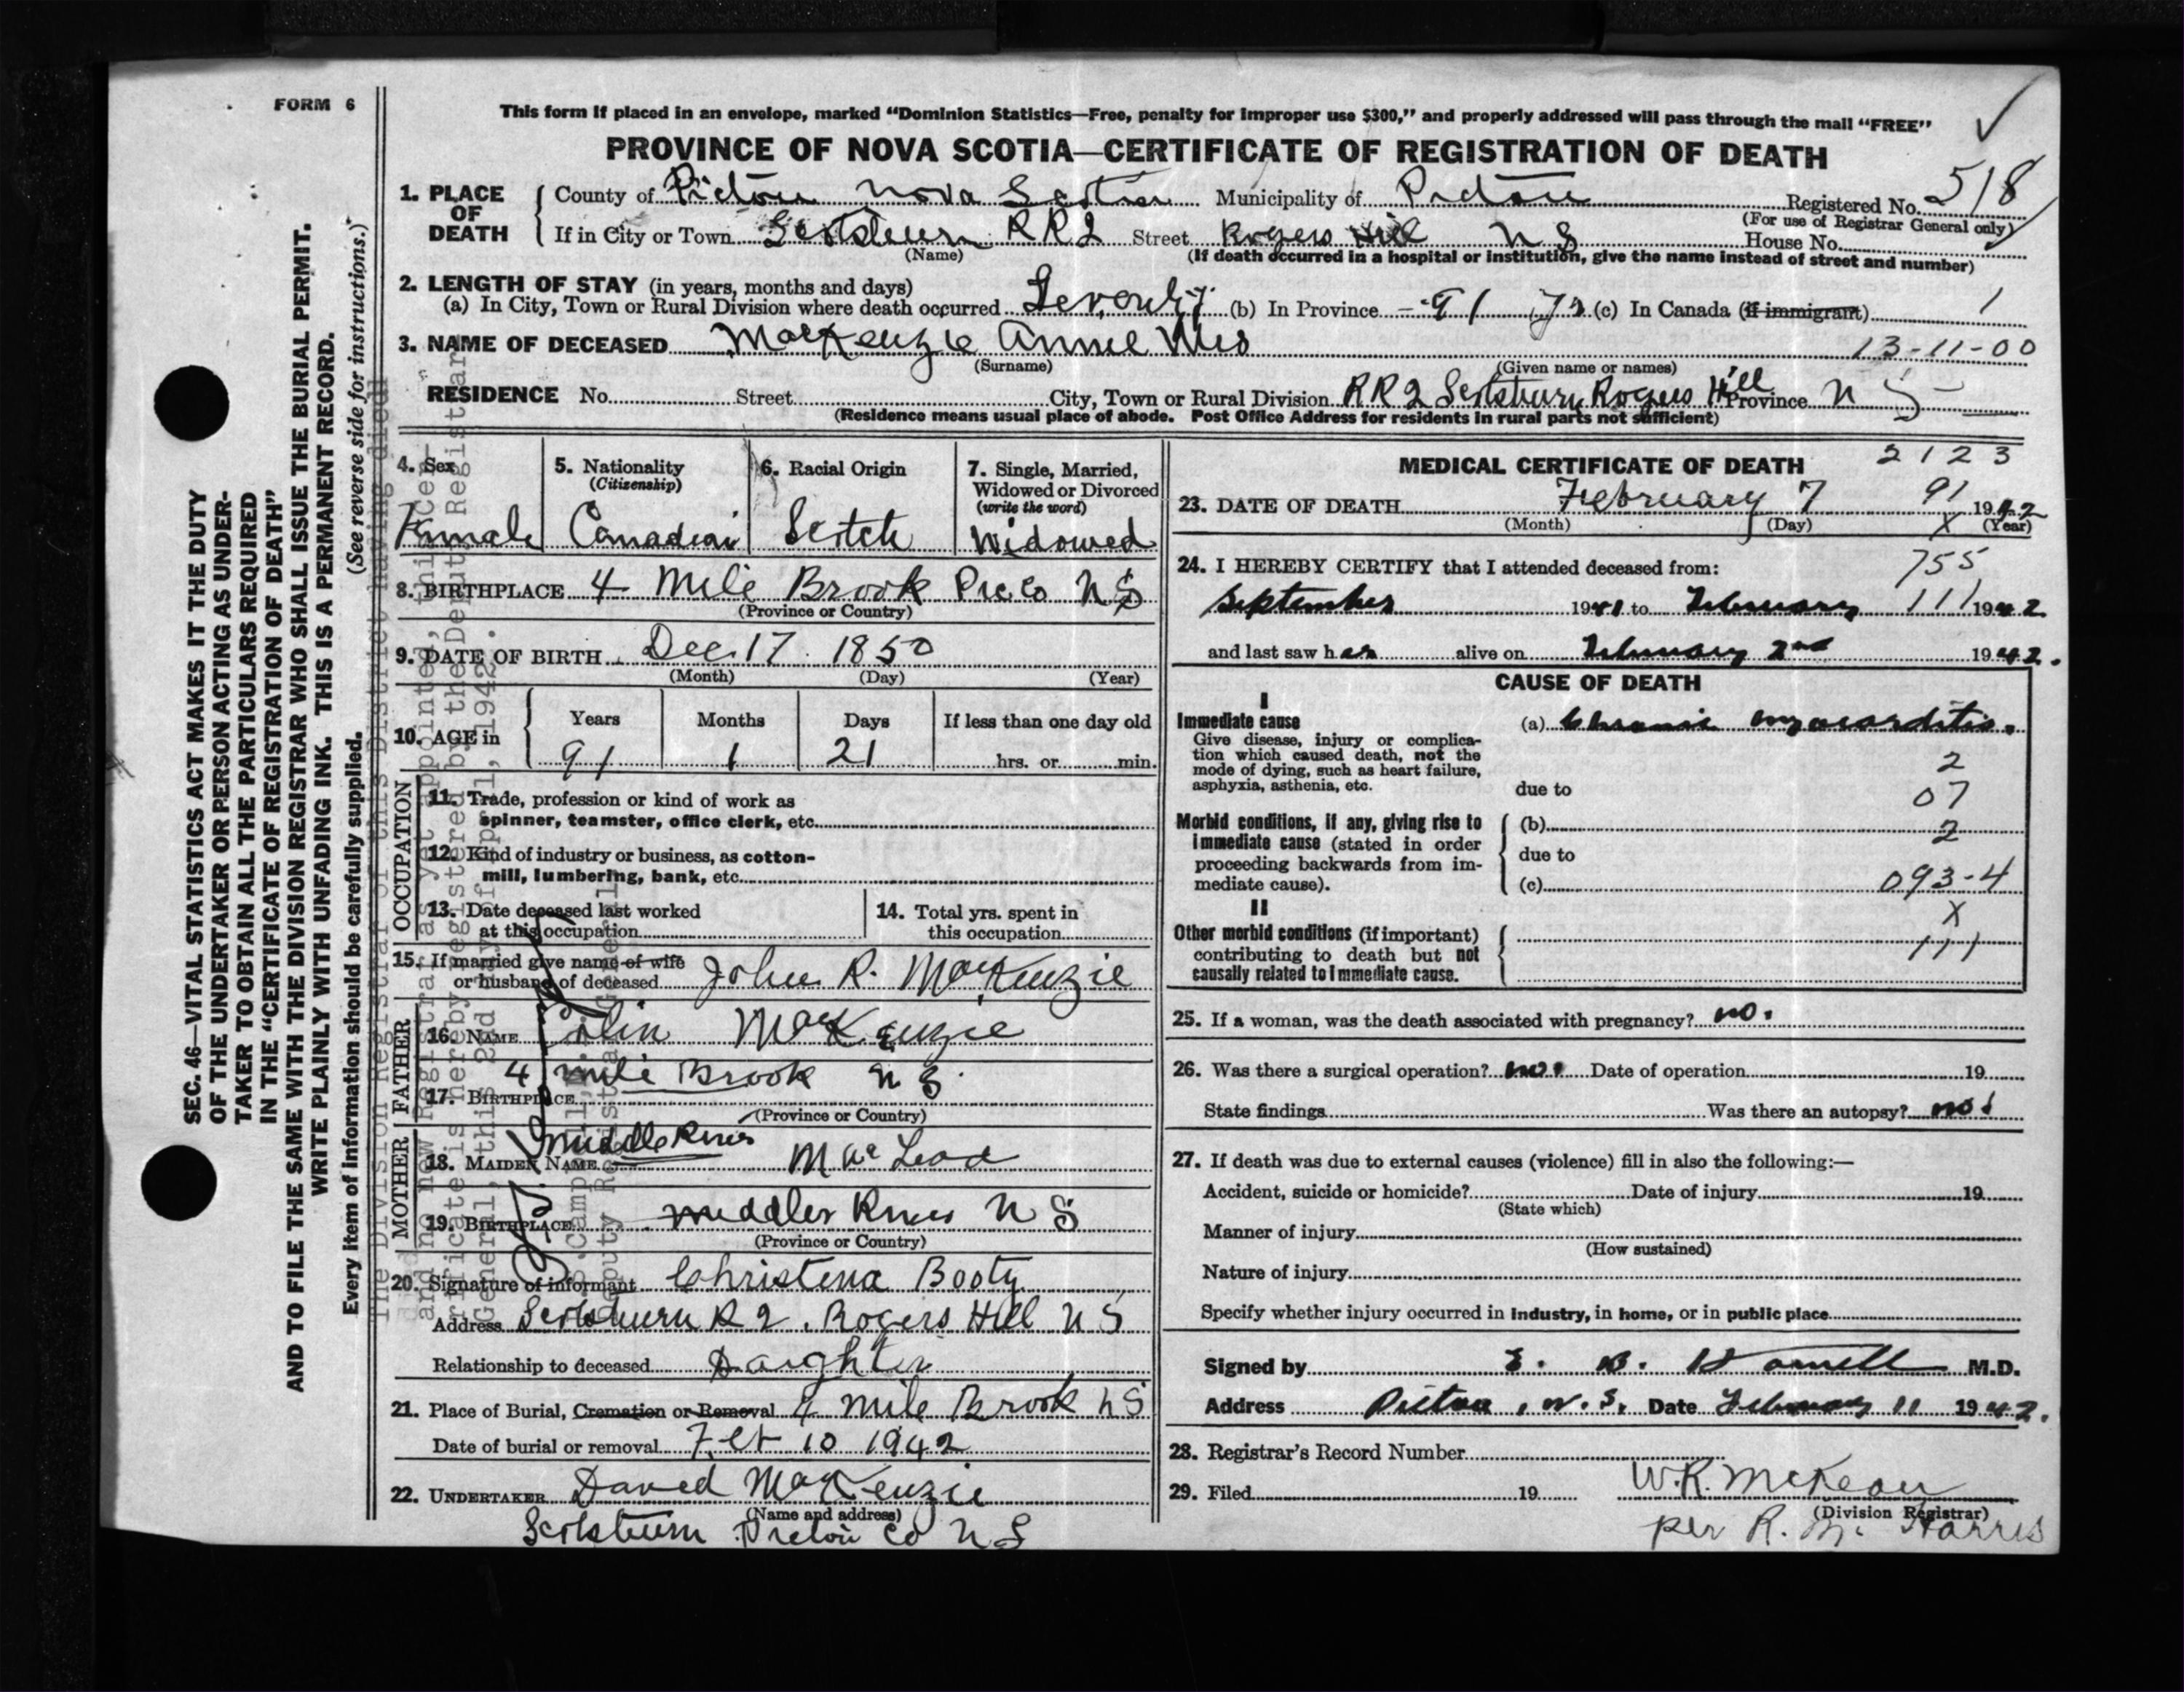 FORM 6
This form if placed in an envelope, marked “Dominion Statistics—Free, penalty for improper use $300,” and properly addressed will pass through the mail “FREE”
PROVINCE OF NOVA SCOTIA—CERTIFICATE OF REGISTRATION OF DEATH
1. PLACE OF DEATH
County of Pictou Nova Scotia Municipality of Pictou Registered No. 518
(For use of Registrar General only)
If in City or Town Scotsburn RR2 Street Rogers Hill N S House No.
(Name) (If death occurred in a hospital or institution, give the name instead of street and number)
2. LENGTH OF STAY (in years, months and days)
(a) In City, Town or Rural Division where death occurred Seventy (b) In Province 91 (c) In Canada (if immigrant) 1
3. NAME OF DECEASED MacKenzie Annie Mrs 13-11-00
(Surname) (Given name or names)
RESIDENCE No. Street City, Town or Rural Division RR2 Scotsburn Rogers Hill Province N S
(Residence means usual place of abode. Post Office Address for residents in rural parts not sufficient)
4. Sex Female
5. Nationality (Citizenship) Canadian
6. Racial Origin Scotch
7. Single, Married, Widowed or Divorced (write the word) Widowed
8. BIRTHPLACE 4 Mile Brook Pic Co N S
(Province or Country)
9. DATE OF BIRTH Dec 17 1850
(Month) (Day) (Year)
10. AGE in Years 91 Months 1 Days 21 If less than one day old hrs. or min.
OCCUPATION
11. Trade, profession or kind of work as spinner, teamster, office clerk, etc.
12. Kind of industry or business, as cotton-mill, lumbering, bank, etc.
13. Date deceased last worked at this occupation
14. Total yrs. spent in this occupation
15. If married give name of wife or husband of deceased John R. MacKenzie
FATHER
16. NAME Colin MacKenzie
4 mile Brook N S
17. BIRTHPLACE
(Province or Country)
MOTHER
Middle River
18. MAIDEN NAME MacLeod
19. BIRTHPLACE Middle River N S
(Province or Country)
20. Signature of informant Christena Booty
Address Scotsburn R 2. Rogers Hill N S
Relationship to deceased Daughter
21. Place of Burial, Cremation or Removal 4 Mile Brook N S
Date of burial or removal Feb 10 1942
22. UNDERTAKER David MacKenzie
(Name and address)
Scotsburn Pictou Co N S
MEDICAL CERTIFICATE OF DEATH 2123
23. DATE OF DEATH February 7 91 1942
(Month) (Day) X (Year)
24. I HEREBY CERTIFY that I attended deceased from: 755
September 1941 to February 111 1942
and last saw her alive on February 2nd 1942.
CAUSE OF DEATH
I
Immediate cause (a) Chronic myocarditis.
Give disease, injury or complica-
tion which caused death, not the
mode of dying, such as heart failure, 2
asphyxia, asthenia, etc. due to 07
Morbid conditions, if any, giving rise to (b) 2
immediate cause (stated in order due to
proceeding backwards from im-
mediate cause). (c) 093-4
II X
Other morbid conditions (if important) 111
contributing to death but not
causally related to immediate cause.
25. If a woman, was the death associated with pregnancy? no.
26. Was there a surgical operation? no. Date of operation 19
State findings Was there an autopsy? no.
27. If death was due to external causes (violence) fill in also the following:—
Accident, suicide or homicide? Date of injury 19
(State which)
Manner of injury
(How sustained)
Nature of injury
Specify whether injury occurred in industry, in home, or in public place
Signed by E. B. M.D.
Address Pictou, N. S. Date February 11 1942.
28. Registrar's Record Number
29. Filed 19 W.R. McKean
(Division Registrar)
per R. M. Harris
SEC. 46—VITAL STATISTICS ACT MAKES IT THE DUTY
OF THE UNDERTAKER OR PERSON ACTING AS UNDER-
TAKER TO OBTAIN ALL THE PARTICULARS REQUIRED
IN THE “CERTIFICATE OF REGISTRATION OF DEATH”
AND TO FILE THE SAME WITH THE DIVISION REGISTRAR WHO SHALL ISSUE THE BURIAL PERMIT.
WRITE PLAINLY WITH UNFADING INK. THIS IS A PERMANENT RECORD.
Every item of information should be carefully supplied. (See reverse side for instructions.)
The Division Registrar of this District having died
and no new Registrar as yet appointed, this Cer-
tificate is hereby registered by the Deputy Registrar
General, this 2nd day of April, 1942.
Deputy Registrar General